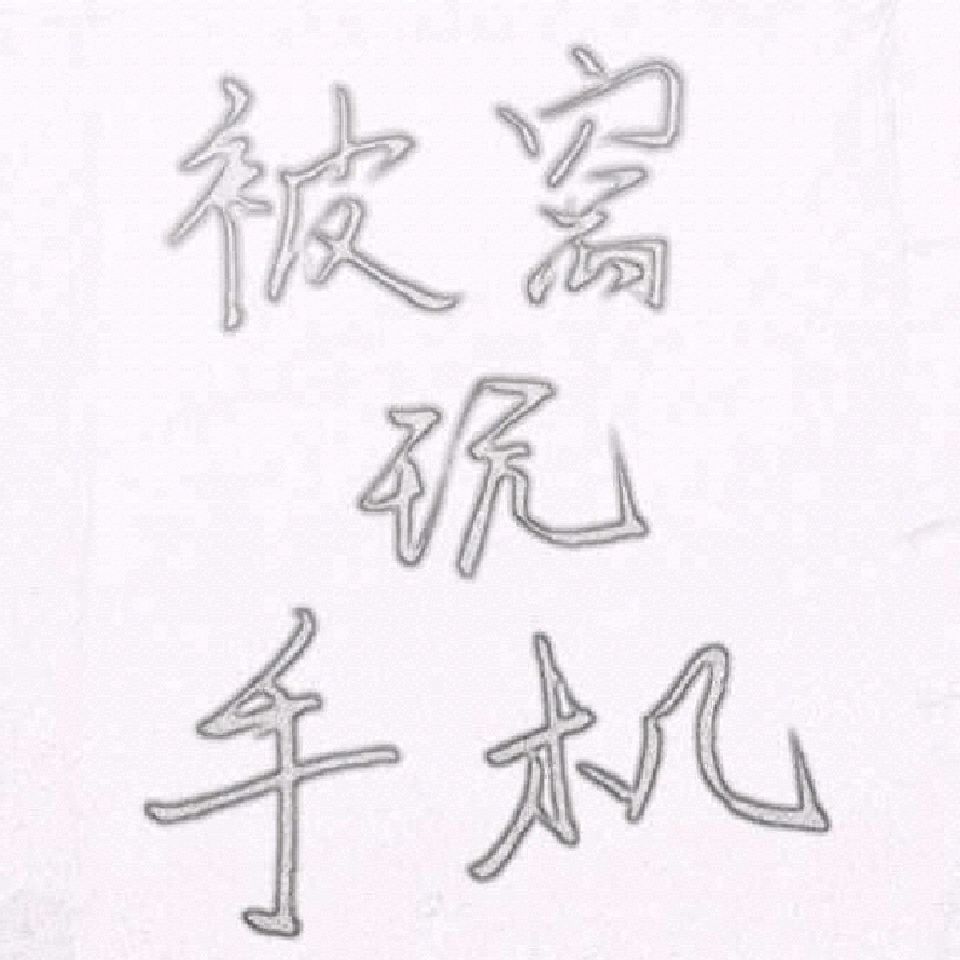 被窝
玩
手机